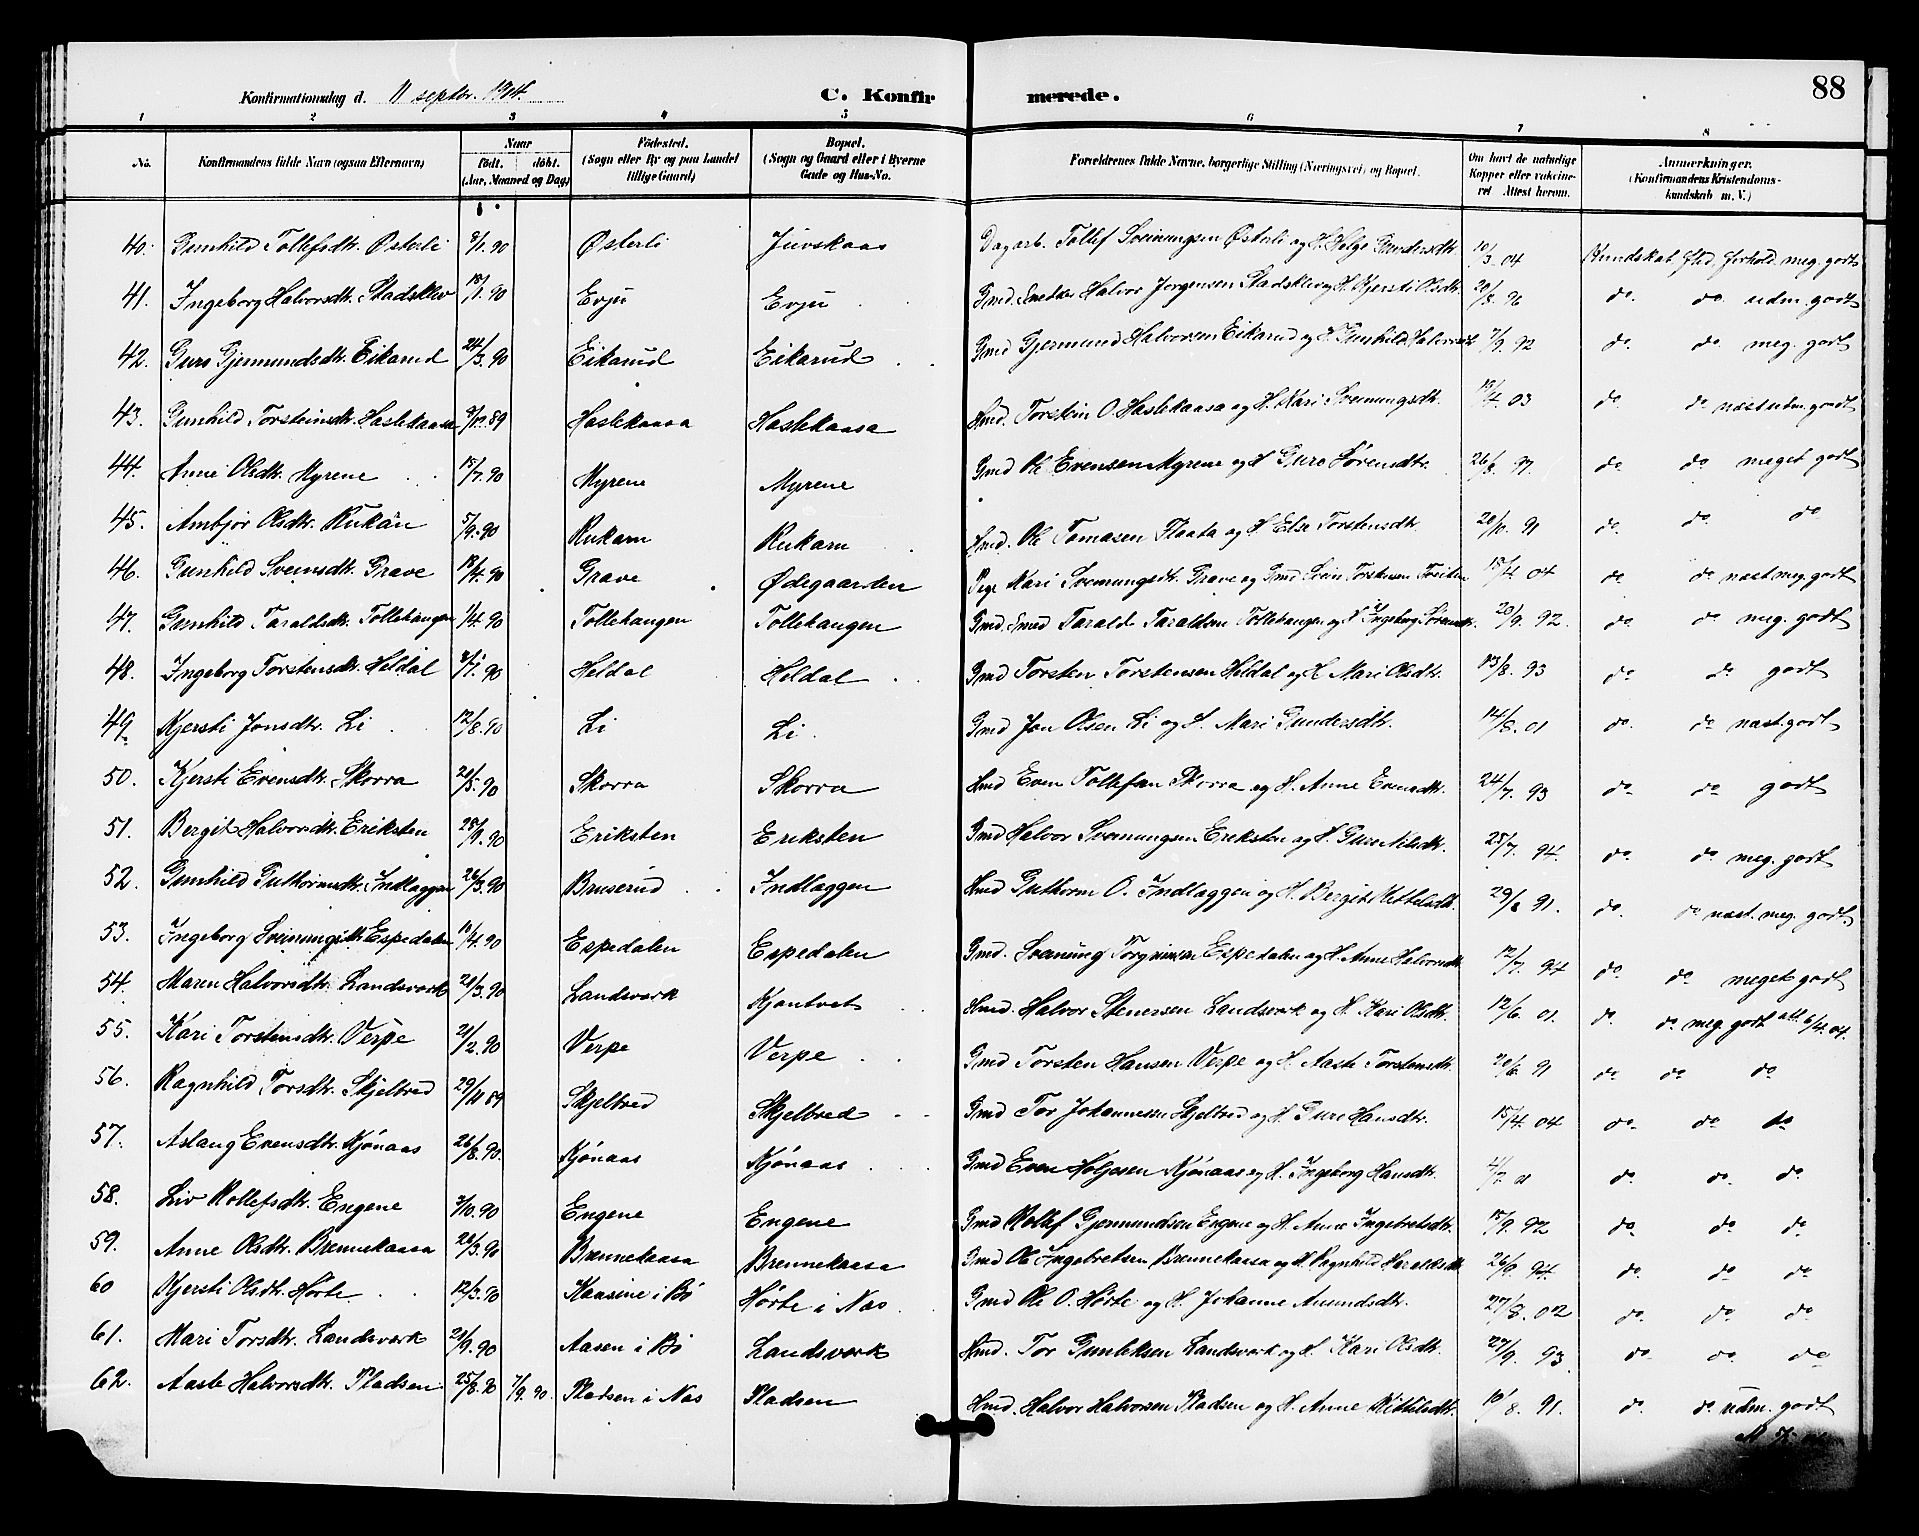 Konfirmationsdag d. 11 septbr. 1904.
C. Konfirmerede.
88
1 2 3 4 5 6 7 8
No. Konfirmandens fulde Navn (ogsaa Efternavn) Naar födt. döbt. (Aar, Maaned og Dag) Födested. (Sogn eller By og paa Landet tillige Gaard) Bopæl. (Sogn og Gaard eller i Byerne Gade og Hus-No. Forældrenes fulde Navne, borgerlige Stilling (Næringsvei) og Bopæl. Om havt de naturlige Kopper eller vakcineret Attest herom. Anmærkninger. (Konfirmandens Kristendomskundskab m. V.)
40. Gunhild Tollefsdtr. Østerli 9/1. 90 Østerli Juvskaas Dagarb. Tollef Sveinungsen Østerli og H. Helge Gundersdtr. 10/3 04 Kundskab flid forhold meg. godt
41. Ingeborg Halvorsdtr. Stadskleiv 18/1. 90 Evju Evju Gmd. Snedker Halvor Jorgensen Stadskleiv og H. Kjersti Olsdtr. 20/8. 96 do. do. udm. godt
42. Guro Gjermundsdtr. Eikarud 24/3. 90 Eikarud Eikarud Gmd Gjermund Halvorsen Eikarud og H. Gunhild Halvorsdt 7/9. 92 do. do. meg. godt
43. Gunhild Torsteinsdtr. Haslekaasa 9/10. 89 Haslekaasa Haslekaasa Hmd. Torstein O. Haslekaasa og H. Kari Sveinungsdtr. 19/4. 03 do. do næst udm. godt
44. Anne Olsdtr. Myrene 15/7. 90 Myrene Myrene Gmd Ole Evensen Myrene og H Guro Sørensdtr. 26/8. 97. do. do meget godt
45. Ambjør Olsdtr. Rukan 5/9. 90 Rukan Rukan Hmd. Ole Tomasen Flaata og H Else Torstensdtr. 20/10. 91 do. do. do
46. Gunhild Sveinsdtr. Grave 18/4. 90 Grave Ødegaarden Pige Kari Sveinungsdtr. Grave og Gmd Svein Torstensen 15/4 04 do. do næst meg. godt
47. Gunhild Taraldsdtr. Tollehaugen 1/4. 90 Tollehaugen Tollehaugen Gmd. Smed Tarald Taraldsen Tollehaugen og H Ingeborg 20/9. 92. do. do. meg. godt
48. Ingeborg Torstensdtr. Heldal 3/1. 90 Heldal Heldal Gmd Torsten Torstensen Heldal og H Mari Olsdtr. 13/8. 93 do. do. godt
49. Kjersti Jonsdtr. Li 12/8. 90 Li Li Gmd Jon Olsen Li og H. Mari Gundersdtr. 14/8. 01 do. do. næst. godt
50. Kjersti Evensdtr. Skorra 20/5. 90 Skorra Skorra Hmd Even Tollefsen Skorra og H. Anne Evensdtr. 24/7. 93 do. do. godt
51. Bergit Halvorsdtr. Eriksten 28/9. 90 Eriksten Eriksten Gmd Halvor Sveinungsen Eriksten og H. Guro Nilsdtr. 25/7. 94. do. do. meg. godt
52. Gunhild Guthormsdtr. Indlæggen 26/3. 90 Bruserud Indlæggen Hmd Guthorm O. Indlæggen og H. Bergit Kittelsdtr. 29/8 91. do. do næst. meg. godt.
53. Ingeborg Sveinungsdtr. Espedalen 10/4. 90 Espedalen Espedalen Gmd. Sveinung Torgrimsen Espedalen og H. Anne Halvorsdtr 12/7. 94 do. do. meget godt
54. Maren Halvorsdtr. Landsverk 20/3. 90 Landsverk Kjøntvet Hmd. Halvor Stenersen Landsverk og H. Kari Olsdtr. 12/6. 01. do. do meg. godt att. 6/4. 04.
55. Kari Torstensdtr. Verpe 21/2. 90 Verpe Verpe Gmd Torsten Hansen Verpe og H. Aaste Torstensdtr. 20/6. 91 do. do do
56. Ragnhild Torsdtr. Skjelbred 29/11 89 Skjelbred Skjelbred Gmd Tor Johannessen Skjelbred og H. Guro Hansdtr. 15/4 04 do. do. do
57. Aslaug Evensdtr. Kjønaas 26/8. 90. Kjønaas Kjønaas Gmd Even Holjesen Kjønaas og H. Ingeborg Hansdtr. 4/7 01 do. do. do
58. Liv Rollefsdtr. Engene 3/10. 90 Engene Engene Gmd Rollef Gjermundsen Engene og H. Anne Ingebretsdtr. 15/9. 92 do. do. do
59. Anne Olsdtr. Brennekaasa 20/3. 90 Brennekaasa Brennekaasa Gmd Ole Ingebretsen Brennekaasa og H. Ragnhild Haraldsdtr 26/9. 94. do. do. do
60 Kjersti Olsdtr. Hørte 12/3. 90 i Bø Hørte i Næs Gmd Ole O. Hørte og H. Johanne Amundsdtr. 27/8. 02. do. do. do
61. Mari Torsdtr. Landsverk 20/9. 90 Aasen i Bø Landsverk Hmd. Tor Gunleksen Landsverk og H. Kari Olsdtr. 27/9. 93. do. do. do
62. Aaste Halvorsdtr. Pladsen 25/8. 90 7/9. 90. Pladsen i Næs Pladsen Hmd. Halvor Halvorsen Pladsen og H. Anne Kittilsdtr. 10/8. 91. do. do. udm. godt